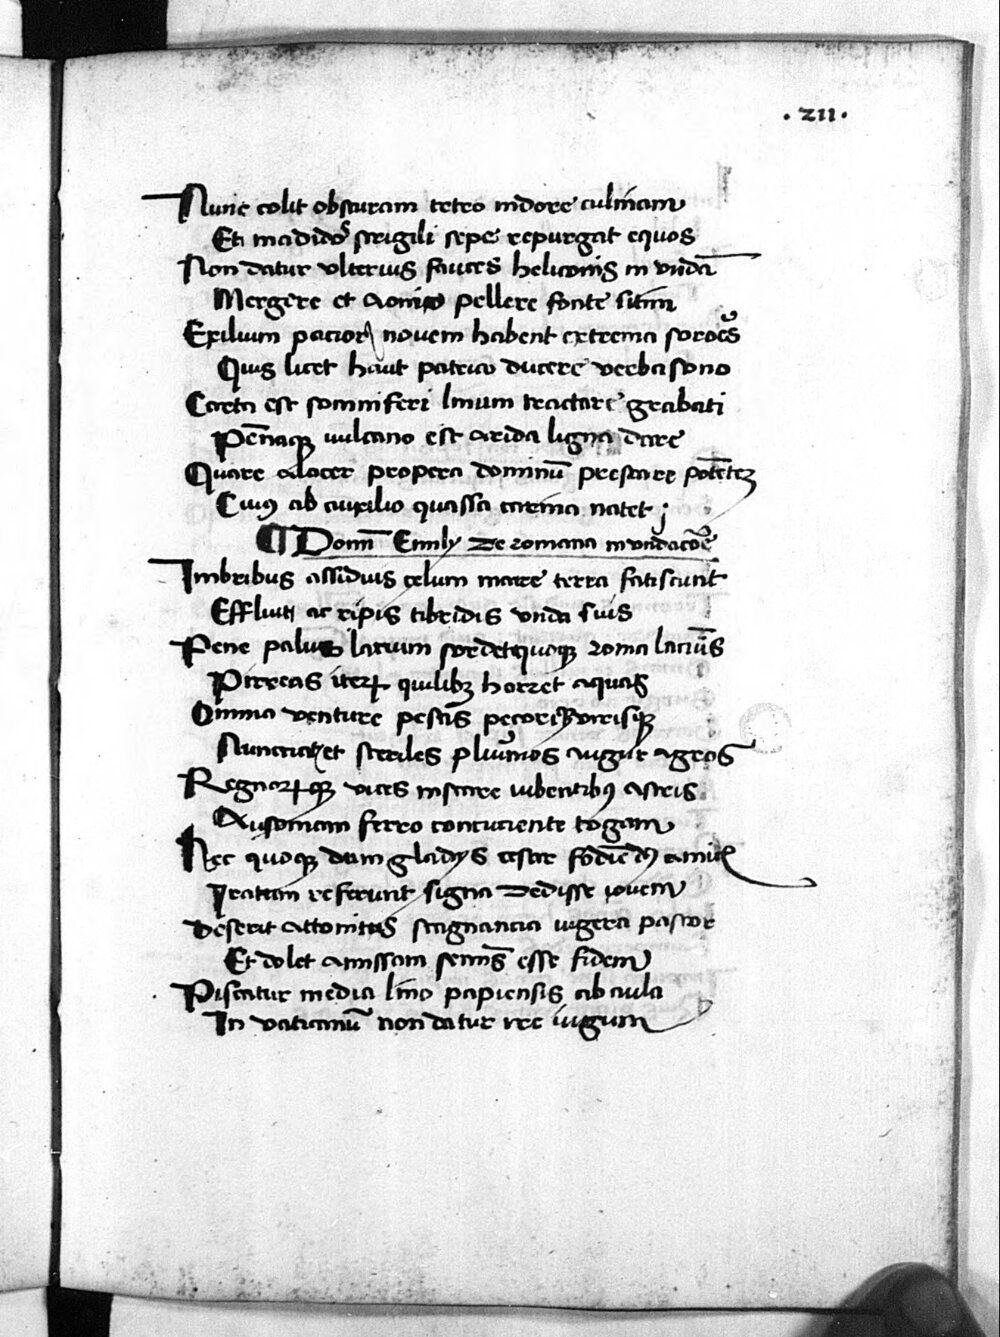 · XII ·
Nunc colit obscuram tetro nidore culinam
Et madidos̄ strigili sepe repurgat equos
Non datur ulterius fauces heliconis in undā
Mergere et aonio pellere fonte sitim
Exilium pacior novem habent extrema sorores
Quis licet haut patrio ducere verba sono
Carta est somniferi limum tractare grabati
Pēnaque vulcano est arida ligna dare
Quare alacer propera dominū prestare potētez
Cuiꝰ ab auxilio quassa carina natet ;
¶ Domī Emily de romana inundacōe
Imbribus assiduis celum mare terra fatiscunt
Effluit ac ripis tibridis unda suis
Pene palus latium sordet quoque roma
Pirreas iterꝝ quilibꝫ horret aquas
Omina venture pestis pecorisque virisque
Nunciat et steriles augur agros
Regnorꝝque vices instare iubentibꝰ astris
Ausoniam ferro concuciente togam
Nec quoque dum gladiis cesar
Iratum referunt signa dedisse iovem
Deserit attonitus stagnancia iugera pastor
Et dolet amissam esse fidem
Piscatur media lino papiensis ab aula
In vaticanū non datur ire iugum